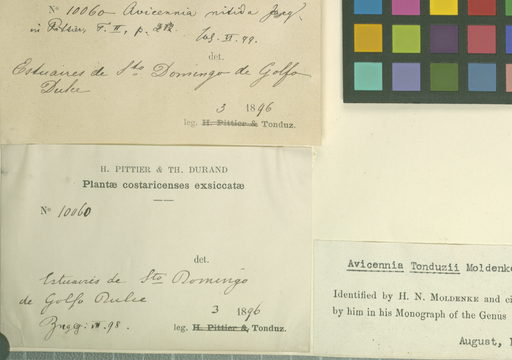 No 10060 Avicennia nitida Jacq.
in Pittier, F. II, p.
VI. 99.
det.
Estuaires de Sto Domingo de Golfo
Dulce
3 1896
leg. H. Pittier & Tonduz.
H. PITTIER & TH. DURAND
Plantæ costaricenses exsiccatæ
No 10060
det.
Estuaires de Sto Domingo
de Golfo Dulce
3 1896
98. leg. H. Pittier & Tonduz.
Avicennia Tonduzii Moldenke
Identified by H. N. MOLDENKE and ci
by him in his Monograph of the Genus
August, 1